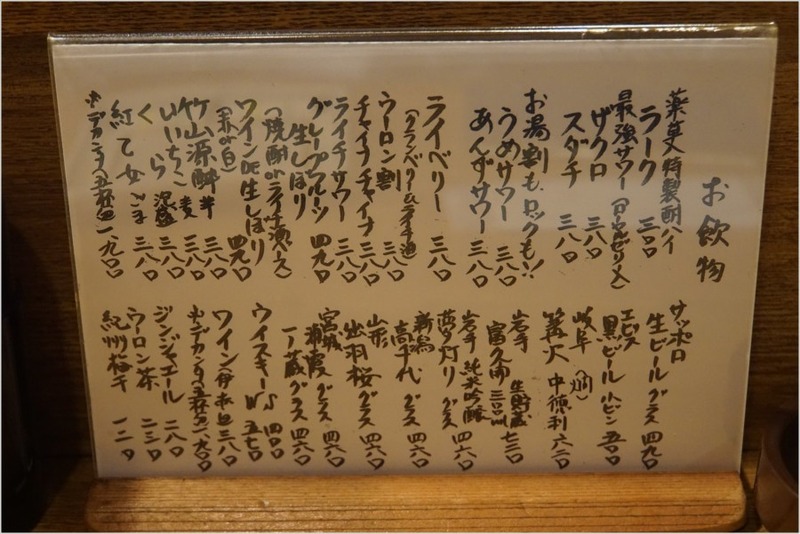 お飲物
薬草入特製酎ハイ
ラーク 三〇〇
最強サワー
ザクロ 三八〇
スダチ 三八〇
お湯割も、ロックも!!
うめサワー 三八〇
あんずサワー 三八〇
ライベリー 三八〇
(クランベリー&ライチ酒)
ウーロン割 三八〇
チャイナチャイナ 三八〇
ライチサワー 三八〇
グレープフルーツ
生しぼり 四九〇
(焼酎orライチ酒ベース)
ワインDE生しぼり
(赤or白) 四九〇
竹山源酔 芋 三八〇
いいちこ 麦 三八〇
くら 泡盛 三八〇
紅乙女 ごま 三八〇
※デカンタ(五杯色) 一、九〇〇
サッポロ
生ビール グラス 四九〇
エビス
黒ビール 小ビン 五〇〇
岐阜 (燗)
篝火 中徳利 六二〇
岩手 生貯蔵
富久南 三〇〇ml 七三〇
岩手 純米吟醸
燈り グラス 四六〇
新潟
高千代 グラス 四六〇
山形
出羽桜 グラス 四六〇
宮城
浦霞 グラス 四六〇
一ノ蔵 グラス 四六〇
ウイスキー S 四〇〇
W 五七〇
ワイン(伊赤白) 三八〇
※デカンタ(五杯色) 一、九〇〇
ジンジャエール 二八〇
ウーロン茶 二三〇
紀州梅干 一二〇